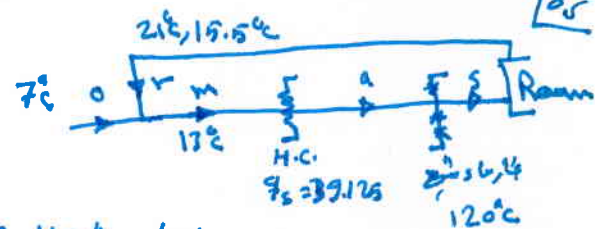 0.5
21°c, 15.5°c
7°c o r m a s Room
13°c
H.C.
q_s = 39.125
120°c